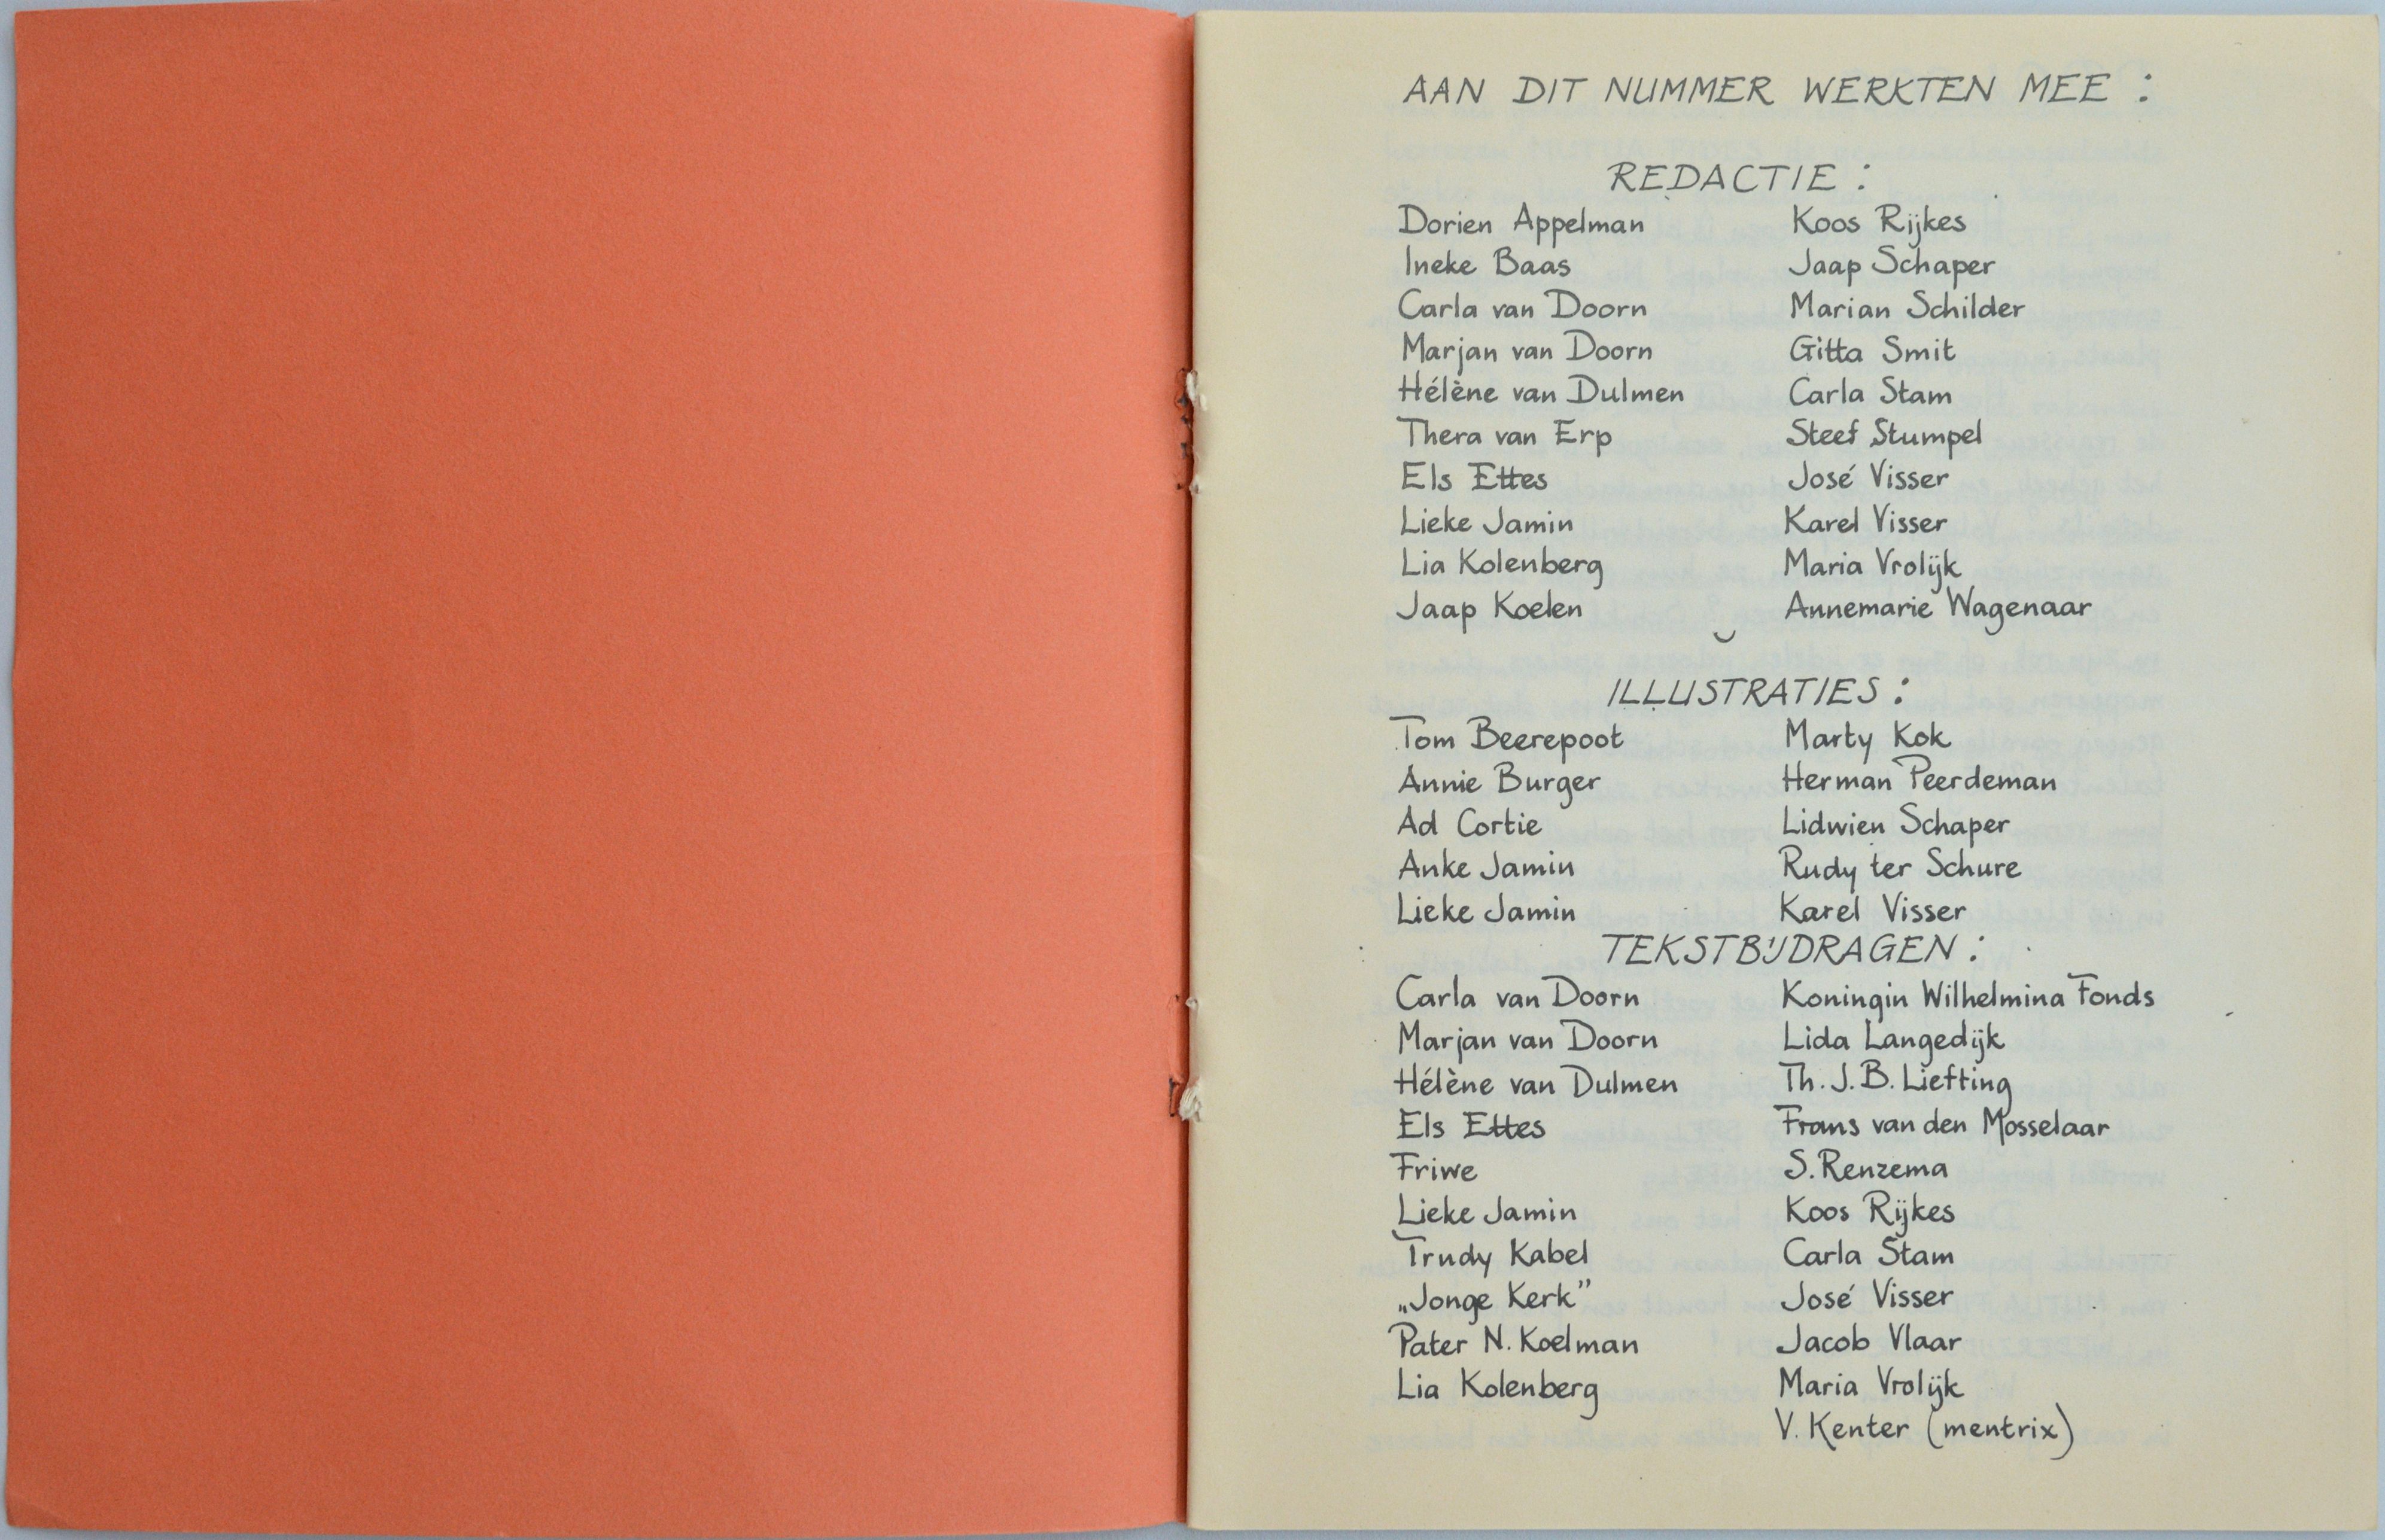 AAN DIT NUMMER WERKTEN MEE :
REDACTIE :
Dorien Appelman Koos Rijkes
Ineke Baas Jaap Schaper
Carla van Doorn Marian Schilder
Marjan van Doorn Gitta Smit
Hélène van Dulmen Carla Stam
Thera van Erp Steef Stumpel
Els Ettes José Visser
Lieke Jamin Karel Visser
Lia Kolenberg Maria Vrolijk
Jaap Koelen Annemarie Wagenaar
ILLUSTRATIES :
Tom Beerepoot Marty Kok
Annie Burger Herman Peerdeman
Ad Cortie Lidwien Schaper
Anke Jamin Rudy ter Schure
Lieke Jamin Karel Visser
TEKSTBIJDRAGEN :
Carla van Doorn Koningin Wilhelmina Fonds
Marjan van Doorn Lida Langedijk
Hélène van Dulmen Th. J. B. Liefting
Els Ettes Frans van den Mosselaar
Friwe S. Renzema
Lieke Jamin Koos Rijkes
Trudy Kabel Carla Stam
„Jonge Kerk” José Visser
Pater N. Koelman Jacob Vlaar
Lia Kolenberg Maria Vrolijk
V. Kenter (mentrix)